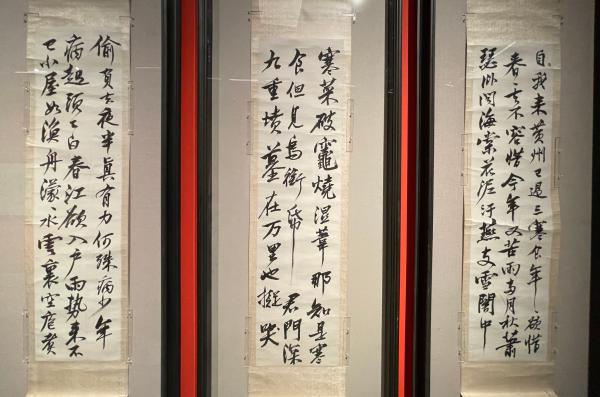 自我来黄州已過三寒食年〻欲惜
春去不容惜今年又苦雨兩月秋蕭
瑟卧闻海棠花泥汙燕支雪闇中
偷負去夜半眞有力何殊病少年
病起頭已白春江欲入户雨勢来不
已小屋如漁舟濛水雲裏空庖煮
寒菜破竈燒湿葦那知是寒
食但見烏銜帋君門深
九重墳墓在万里也擬哭